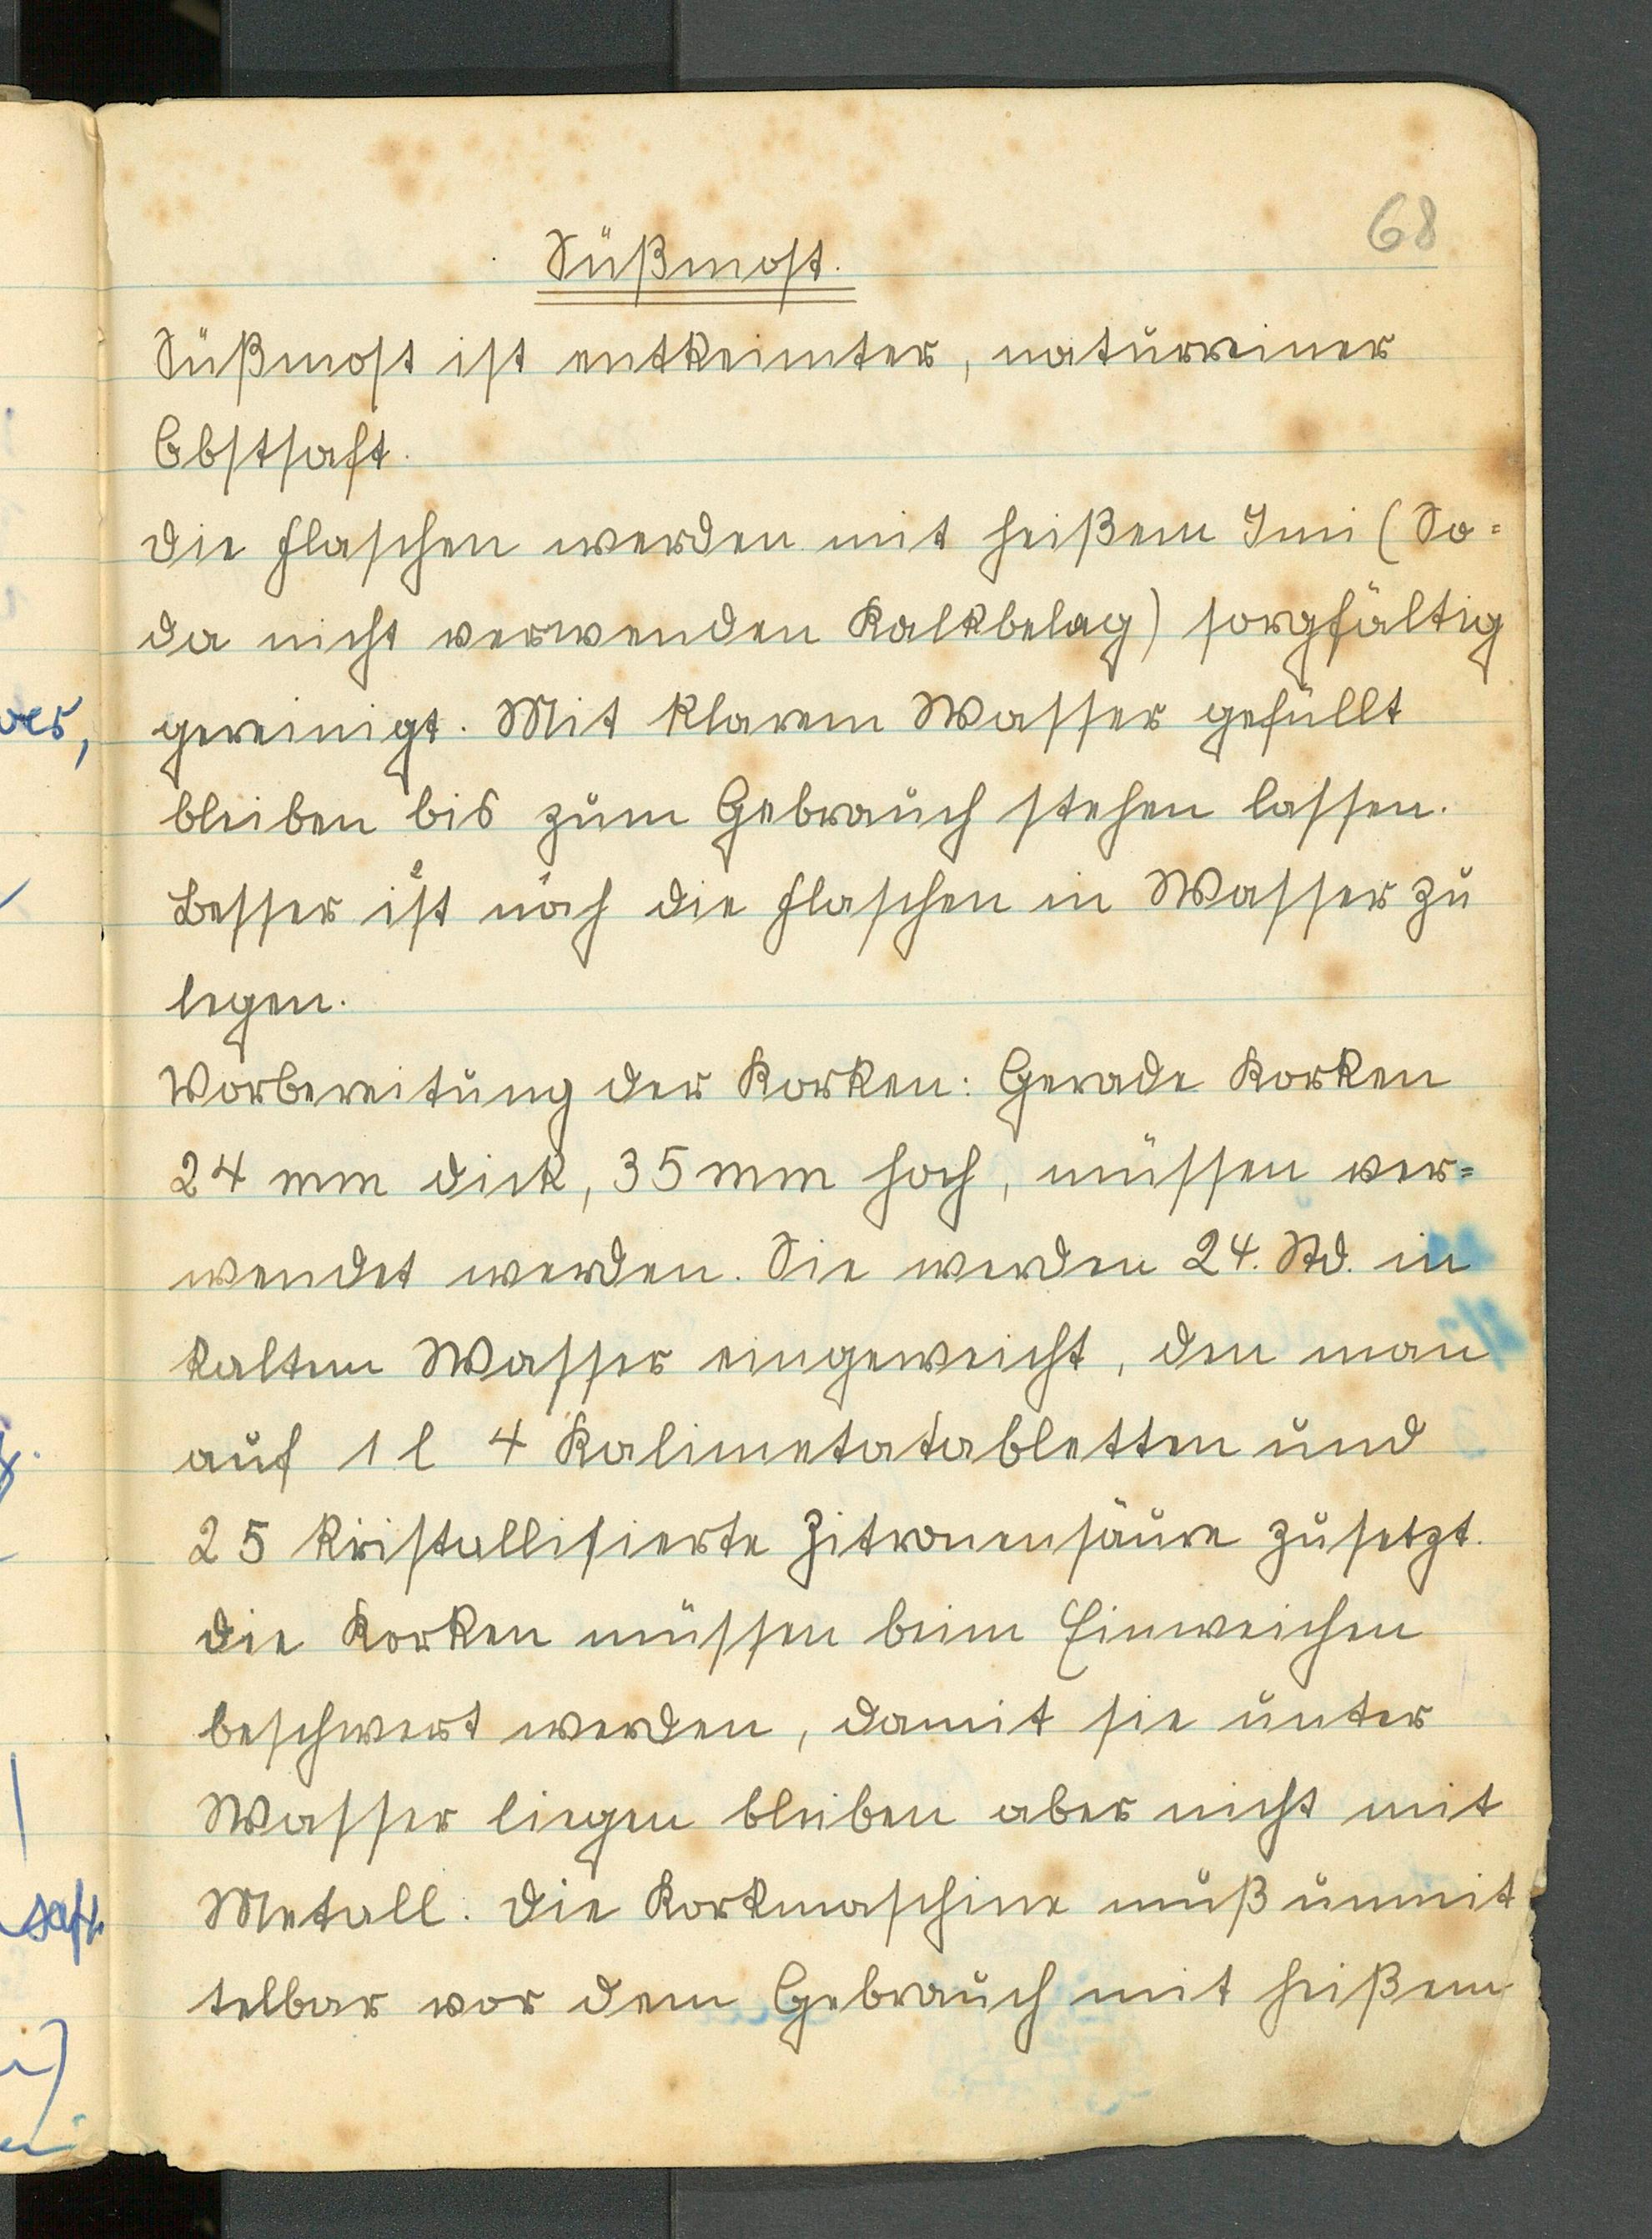 68
Süßmost.
Süßmost ist entkeimter, naturreiner
Obstsaft.
Die Flaschen werden mit heißem Imi (So=
da nicht verwenden Kalkbelag) sorgfältig
gereinigt. Mit klarem Wasser gefüllt
bleiben bis zum Gebrauch stehen lassen.
Besser ist noch die Flaschen in Wasser zu
legen.
Vorbereitung der Korken: Gerade Korken
24 mm dick, 35 mm hoch, müssen ver=
wendet werden. Sie werden 24. Std. in
kaltem Wasser eingeweicht, den man
auf 1 l 4 Kalimetatabletten und
25 kristallisierte Zitronensäure zusetzt.
Die Korken müssen beim Einweichen
beschwert werden, damit sie unter
Wasser liegen bleiben aber nicht mit
Metall. Die Korkmaschine muß unmit
telbar vor dem Gebrauch mit heißem